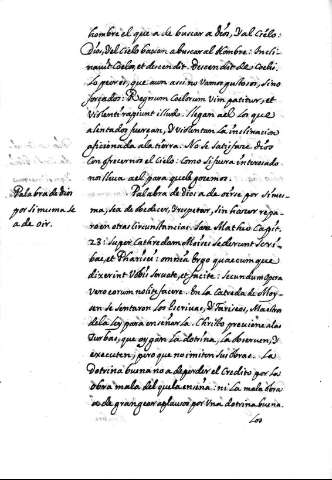 hombre el que a de buscar a dios, Y al Cielo:
Dios, del Cielo baxa a buscar al Hombre: Incli-
navit Coelos, et descendit. Descendit de Coelis.
Lo peor es, que aun assi no Vamos gustosos, sino
forçados: Regnum Coelorum Vim patitur, et
Violenti rapiunt illud. llegan a el los que
alentados fuerçan, y Violentan la inclinacion
aficionada ala tierra. No se satisfaze dios
Con ofrecernos el Cielo: Como si fuera interesado
nos lleva a el para que le gozemos.
Palabra de Dios
por si misma se
a de oir.
Palabra de dios a de oirse por si mes-
ma, sea de obedecer, y respetar, sin hacer repa-
ro en otras Circunstancias. Sanc. Matheo Capit.
23: Super Cathedram Moises sederunt Scri-
bae, et Pharisei: omnia ergo quaecumque
dixerint Vobis Servate, et facite: secundum opera
vero eorum nolite facere. En la Catreda de Moy-
sen se sentaron los Escrivas, y Fariseos, Maestros
de la ley para enseñarla. Christo previene a las
Turbas, que oygan la dotrina, la observen, y
executen; pero que no imiten sus obras. La
dotrina buena no a de perder el Credito por la
obra mala del que la enseña: ni la mala obra
a de grangear aplausos por Una dotrina buena.
Los